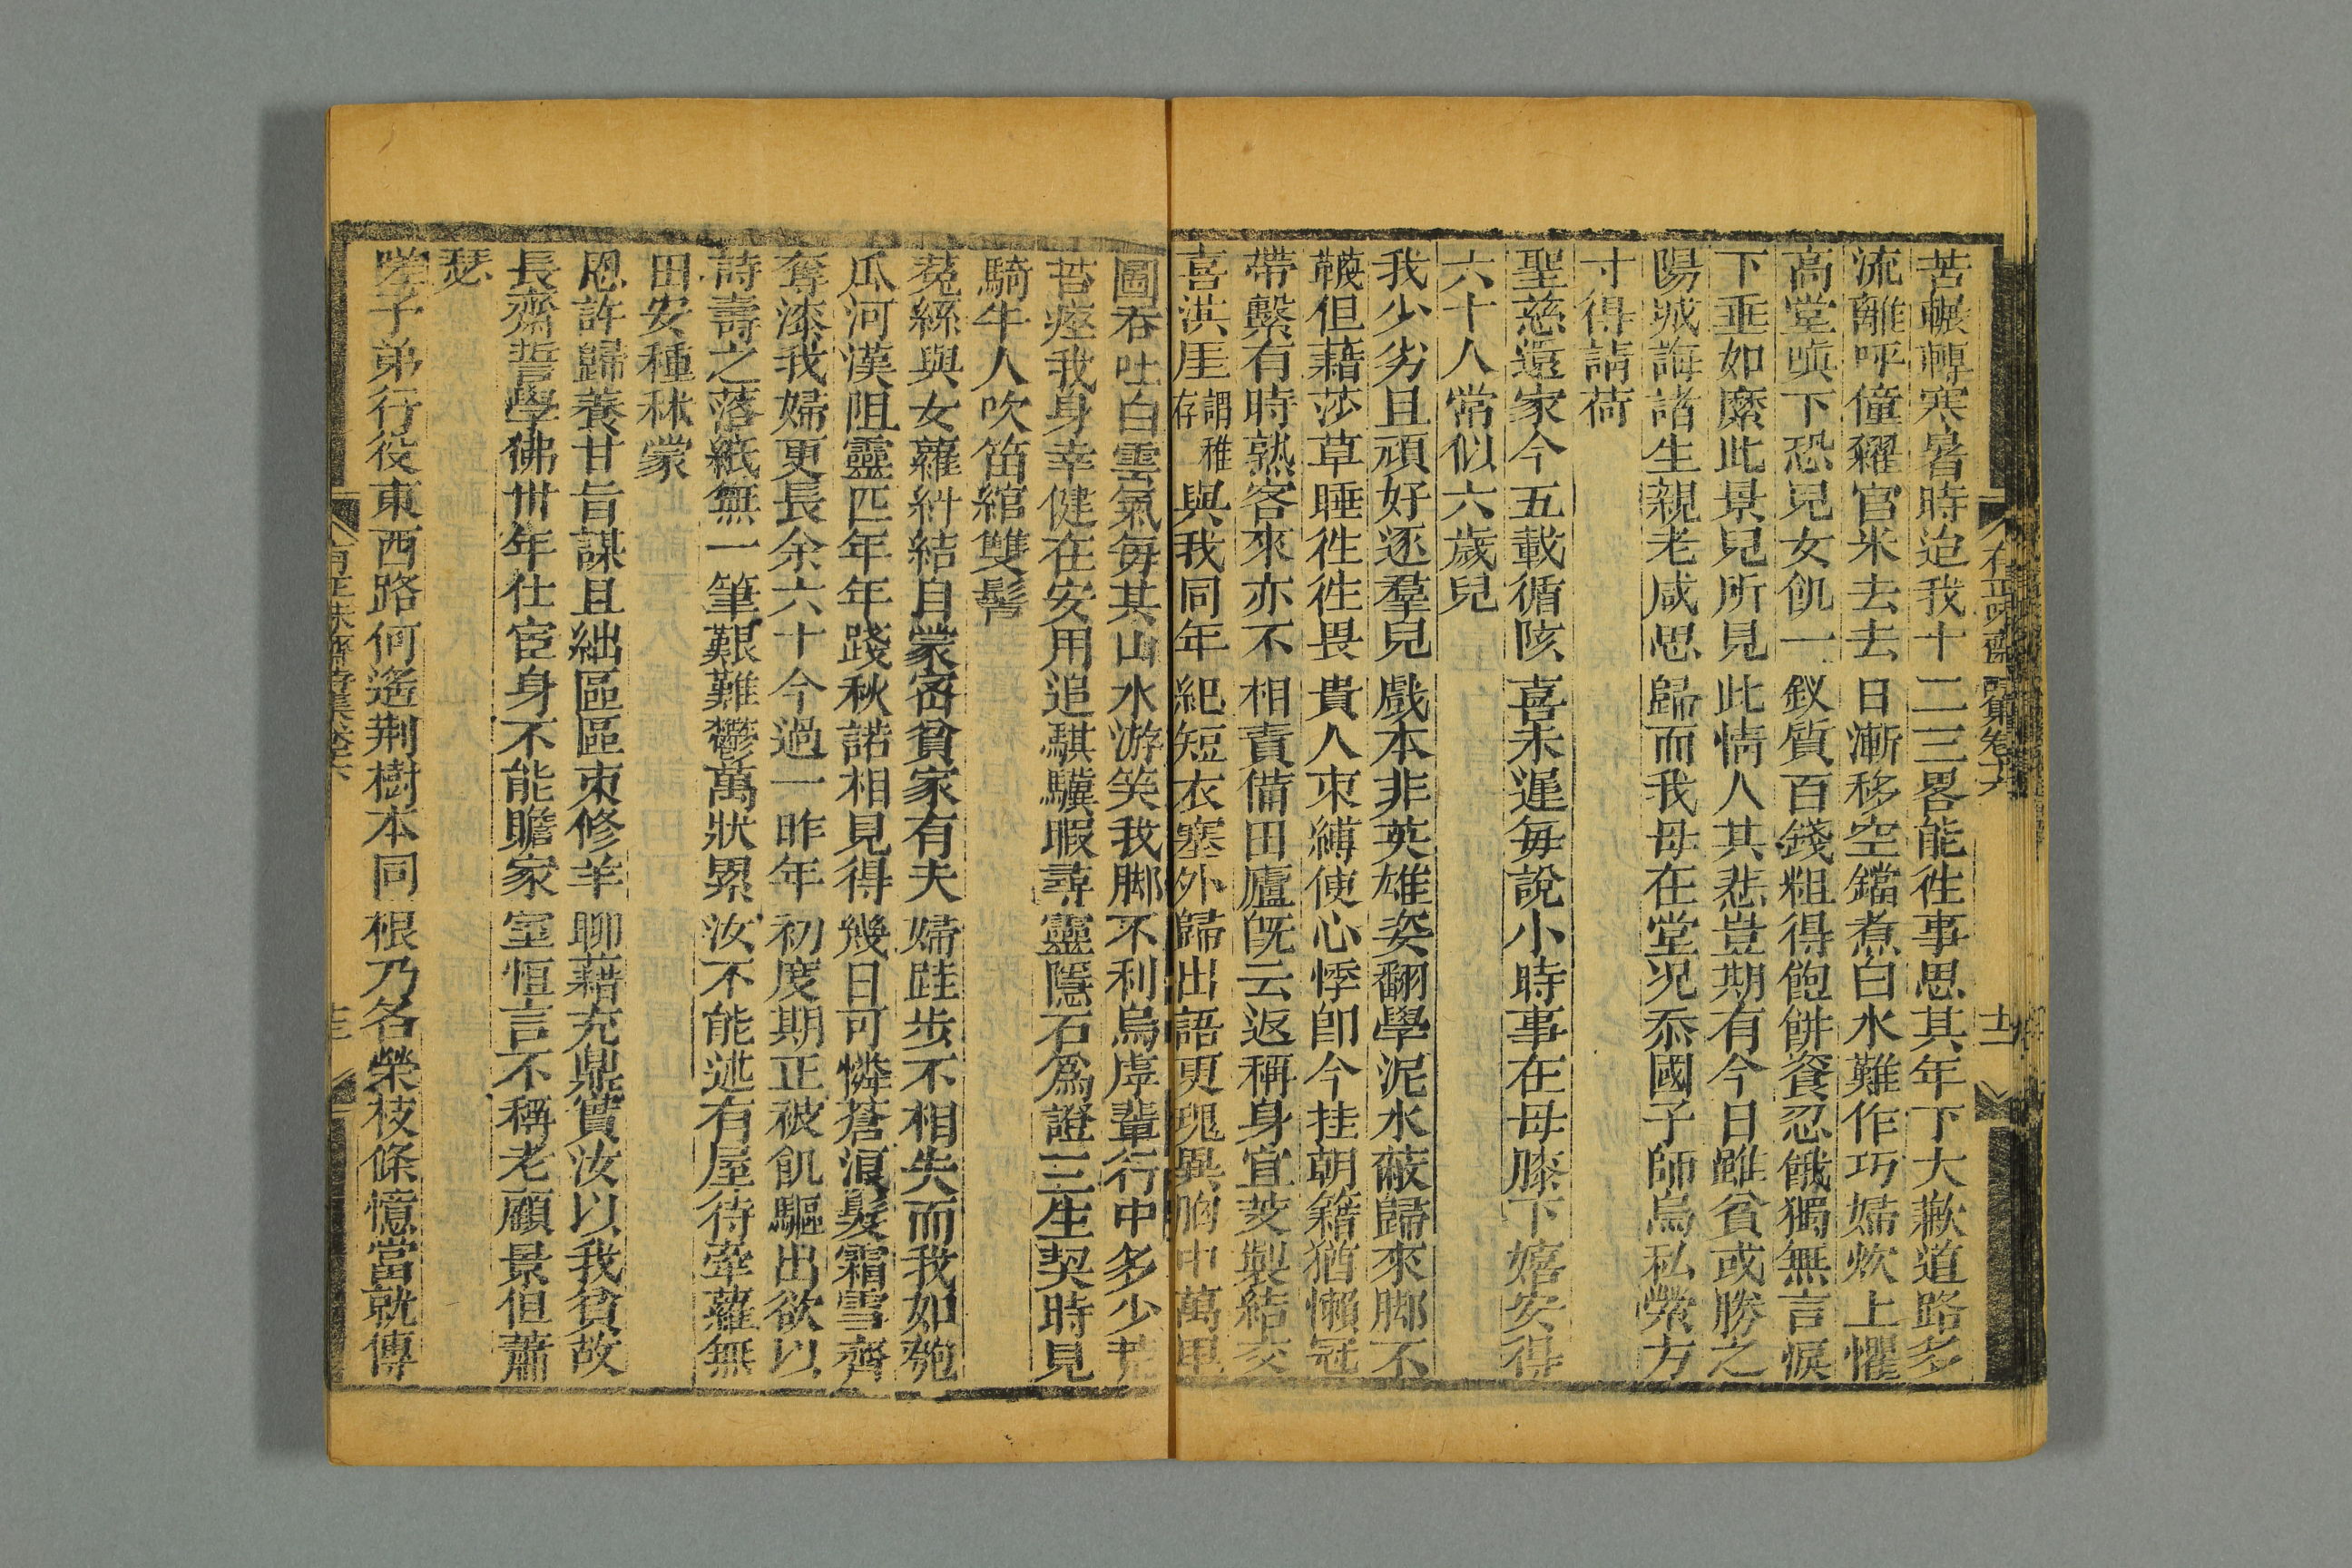 苦輾轉寒暑時迨我十二三畧能徃事思其年下大歉道路多
流離呼僮糴官米去去日漸移空鐺煮白水難作巧婦炊上懼
高堂嗔下恐兒女飢一釵質百錢粗得飽餅餈忍餓獨無言淚
下垂如縻此景兒所見此情人其悲豈期有今日雖貧或勝之
陽城誨諸生親老咸思歸而我母在堂况忝國子師烏私縈方
寸得請荷
聖慈還家今五載循陔喜未遲毎說小時事在母膝下嬉安得
六十人常似六歲兒
我少劣且頑好逐羣兒戲本非英雄姿翻學泥水蔽歸來脚不
韈但藉莎草睡徃徃畏貴人束縛使心悸卽今挂朝籍猶懶冠
帶繫有時熟客來亦不相責備田廬旣云返稱身宜芰製結交
喜洪厓謂稚存與我同年紀短衣塞外歸出語更瑰異胸中萬里
圖吞吐白雲氣毎其山水游笑我脚不利烏虖輩行中多少
苔瘞我身幸健在安用追騏驥暇尋靈隱石爲證三生契時見
騎牛人吹笛綰雙髻
菟絲與女蘿糾結自蒙密貧家有夫婦跬步不相失而我如匏
瓜河漢阻靈匹年年踐秋諾相見得幾日可憐蒼浪髮霜雪齊
奪漆我婦更長余六十今過一昨年初度期正被飢驅出欲以
詩壽之落紙無一筆艱難鬱萬狀累汝不能述有屋待牽蘿無
田安種秫蒙
恩許歸養甘旨謀且絀區區束修羊聊藉充鼎實汝以我貧故
長齋誓學佛卅年仕宦身不能贍家室恒言不稱老顧景但蕭
瑟
嗟予弟行役東西路何遙荆樹本同根乃名榮枝條憶當就傳
有正味齋詩集卷十六